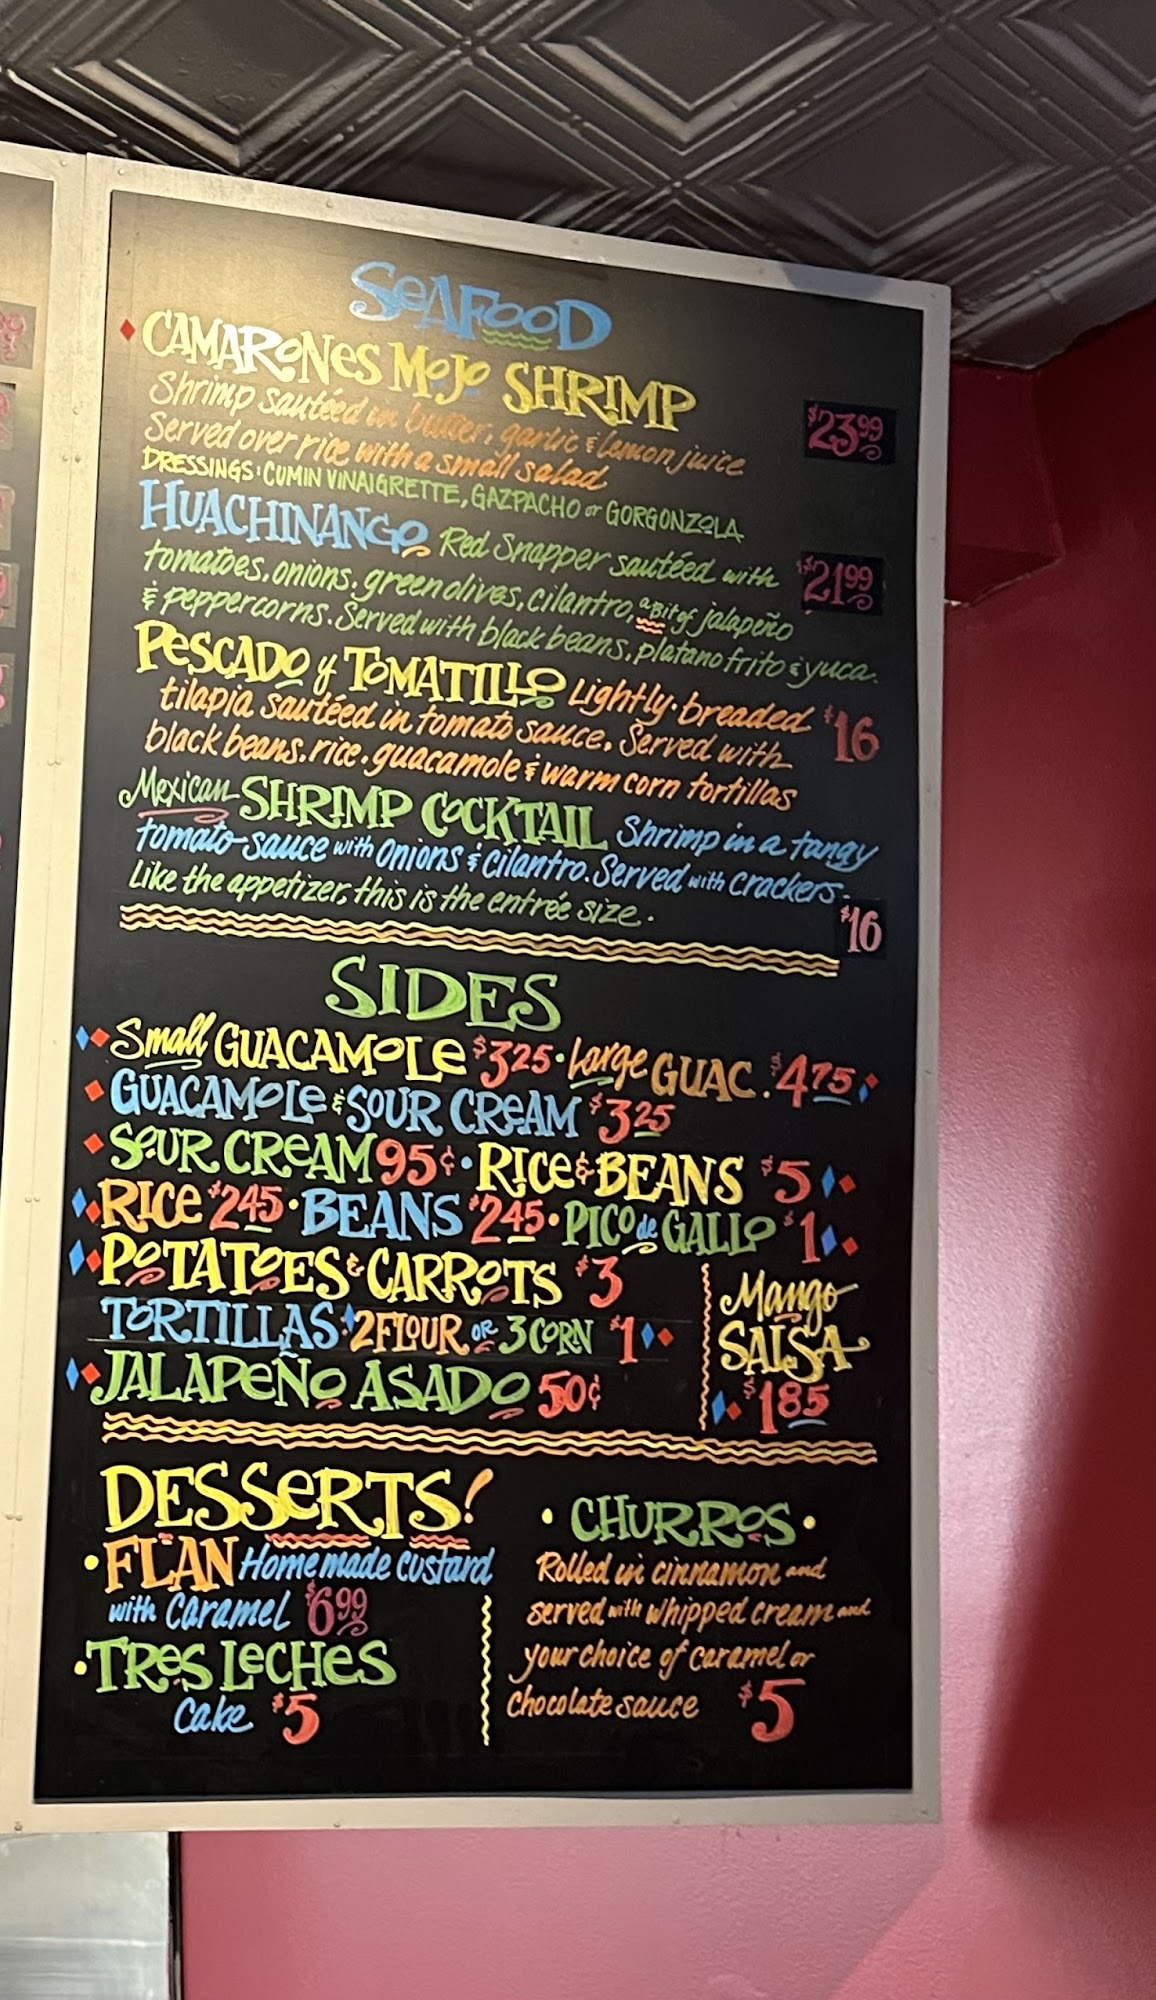 SEAFOOD
CAMARONES MOJO SHRIMP
Shrimp sautéed in butter, garlic & lemon juice $23.99
Served over rice with a small salad
DRESSINGS: CUMIN VINAIGRETTE, GAZPACHO or GORGONZOLA
HUACHINANGO Red Snapper sautéed with $21.99
tomatoes, onions, green olives, cilantro, a Bit of jalapeño
& peppercorns. Served with black beans, platano frito & yuca.
PESCADO y TOMATILLO Lightly-breaded $16
tilapia sautéed in tomato sauce. Served with
black beans, rice, guacamole & warm corn tortillas
Mexican SHRIMP COCKTAIL Shrimp in a tangy
tomato sauce with onions & cilantro. Served with crackers.
Like the appetizer, this is the entrée size.
$16
SIDES
Small GUACAMOLE $3.25 · Large GUAC. $4.75
GUACAMOLE & SOUR CREAM $3.25
SOUR CREAM 95¢ · RICE & BEANS $5
RICE $2.45 · BEANS $2.45 · PICO de GALLO $1
POTATOES & CARROTS $3
TORTILLAS 2 FLOUR OR 3 CORN $1
JALAPEÑO ASADO 50¢
Mango
SALSA
$1.85
DESSERTS!
· FLAN Homemade custard
with caramel $6.99
· TRES LECHES
Cake $5
· CHURROS ·
Rolled in cinnamon and
served with whipped cream and
your choice of caramel or
chocolate sauce $5